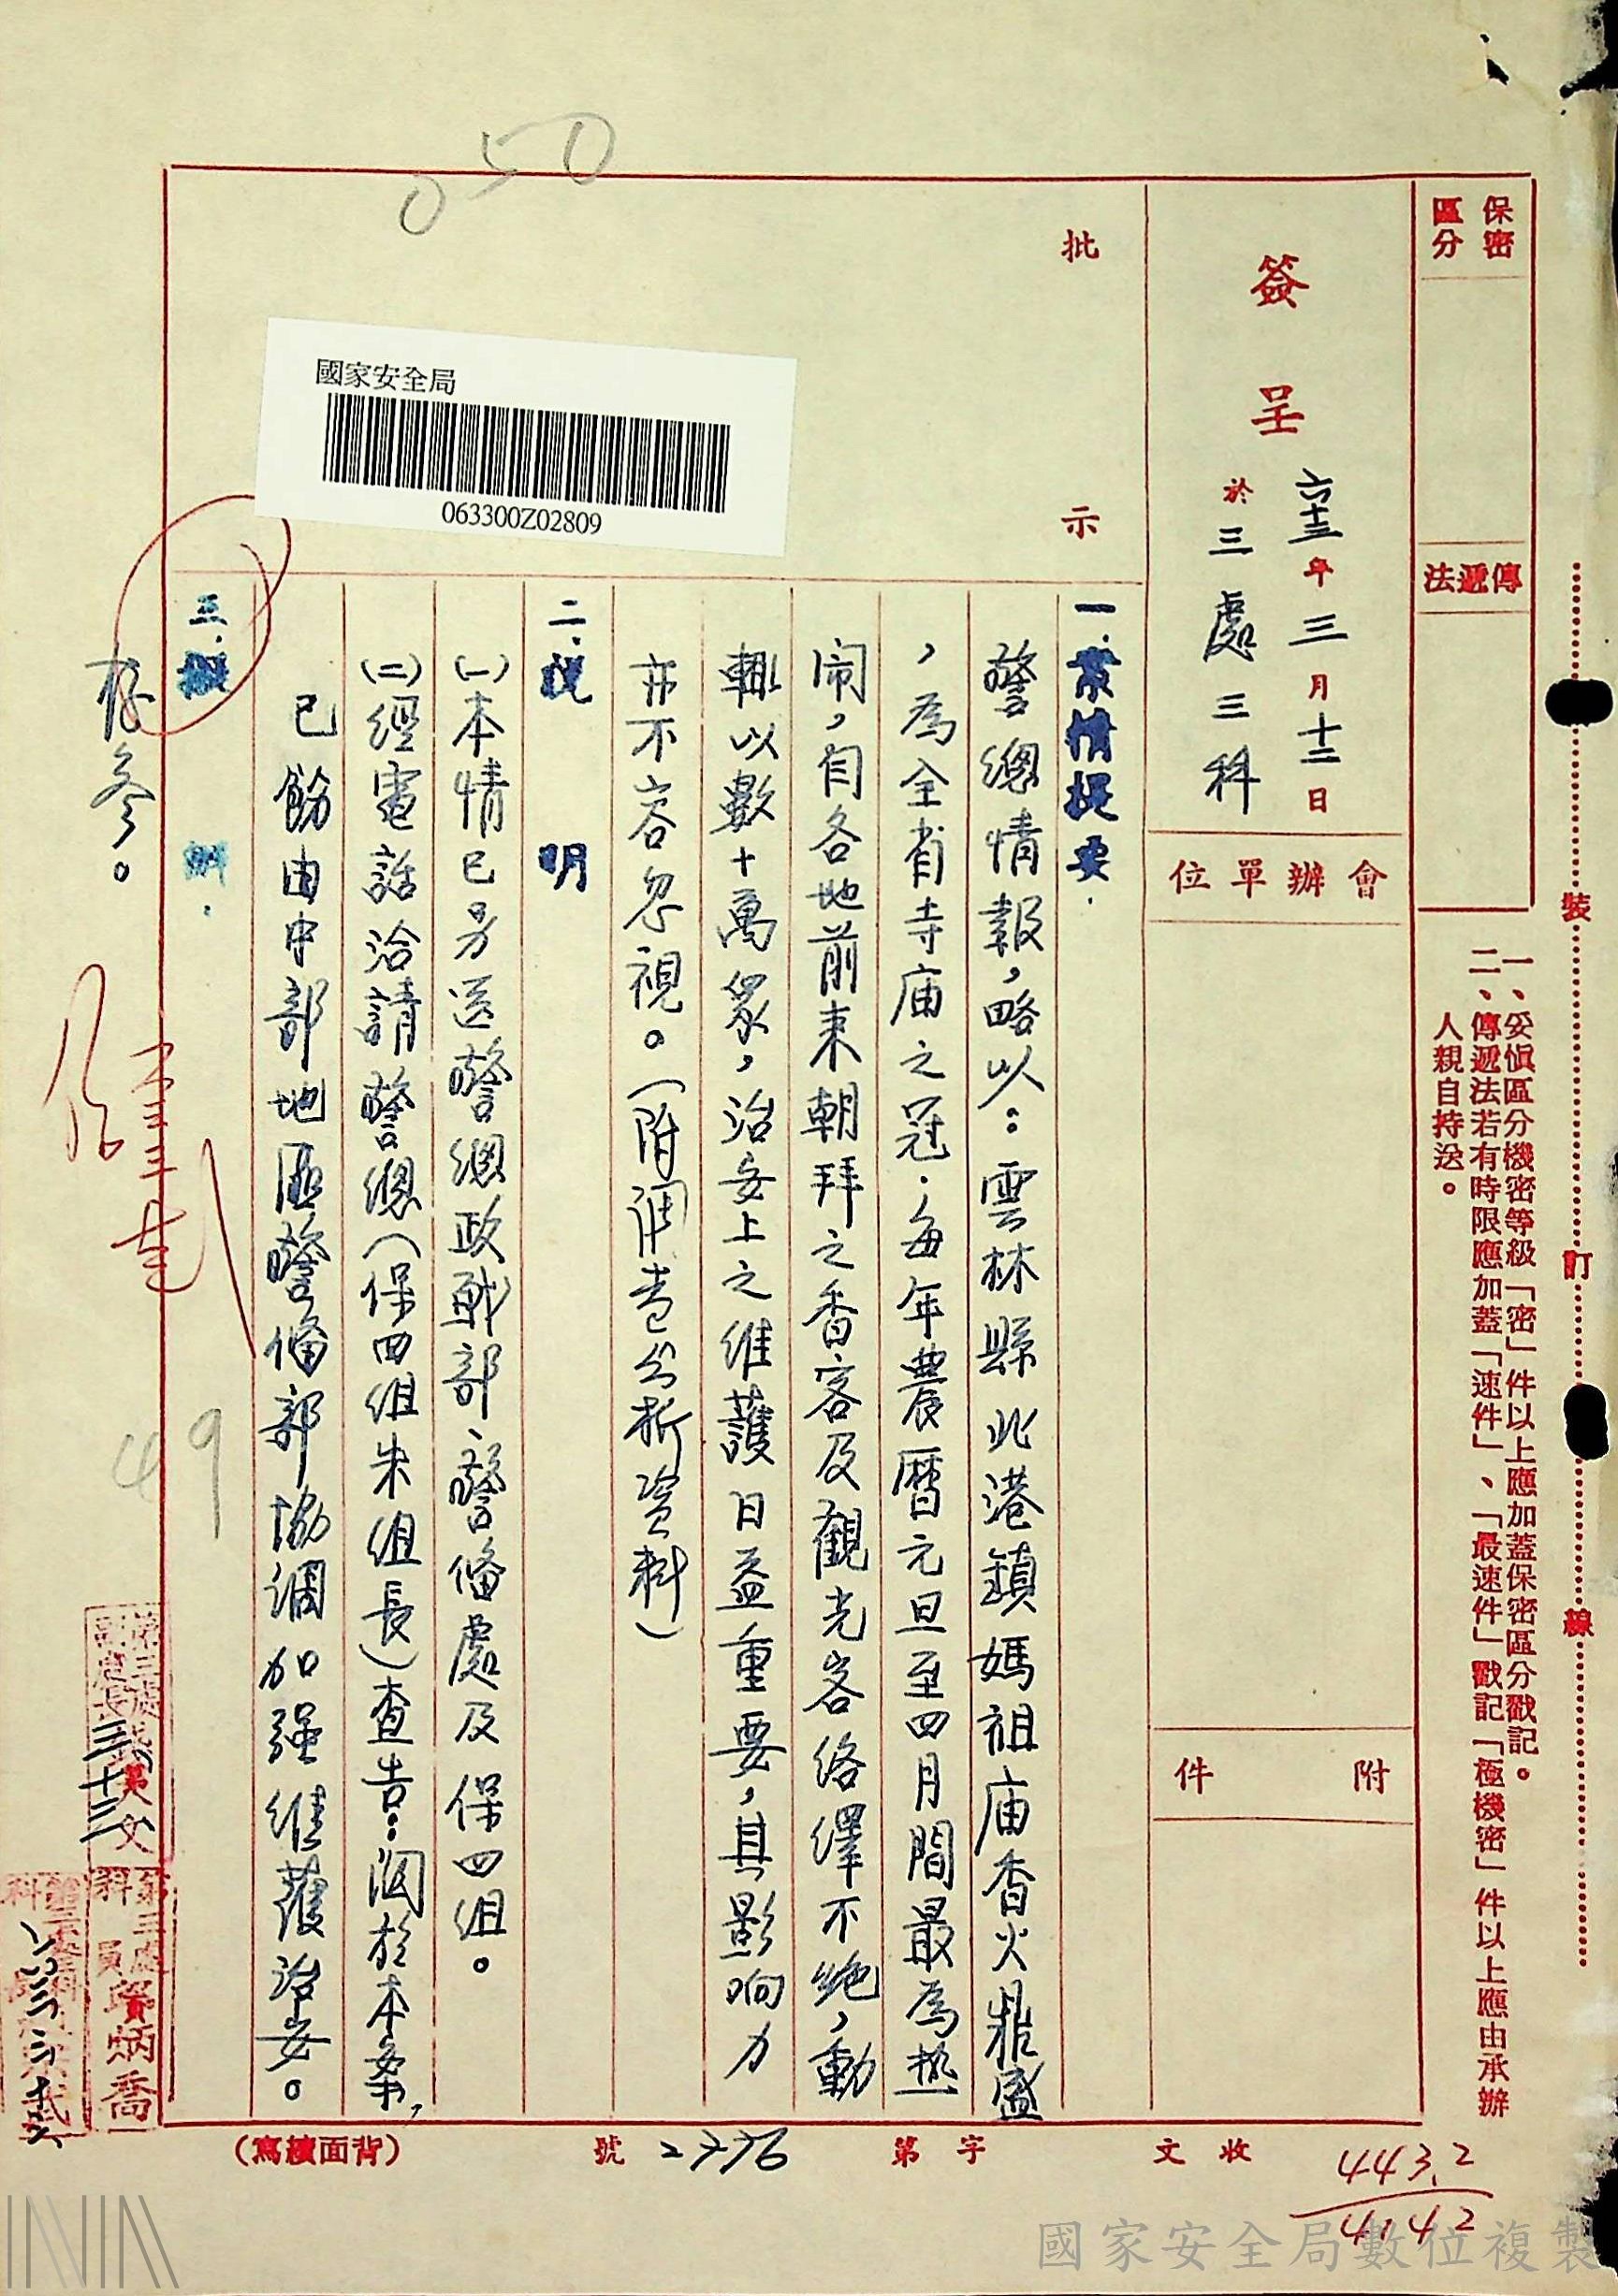 050
保密
區分
傳遞法
一、妥慎區分機密等級「密」件以上應加蓋保密區分戳記。
二、傳遞法若有時限應加蓋「速件」、「最速件」戳記「極機密」件以上應由承辦
人親自持送。
裝
訂
線
簽呈
六十三年三月十二日
於三處三科
會辦單位
附件
批示
國家安全局
063300Z02809
一、案情提要.
警總情報,略以:雲林縣北港鎮媽祖庙香火鼎盛
,為全省寺庙之冠.每年農曆元旦至四月間最為热
闹,自各地前來朝拜之香客及觀光客络繹不绝,動
輒以數十萬眾,治安上之维護日益重要,其影响力
亦不容忽視。(附调查分析資料)
二.說明
(一)本情已另送警總政戰部、警備處及保四組。
(二)經電話洽請警總(保四組朱組長)查告:関於本案,
已飭由中部地區警備部協調加强维護治安。
三.擬辦.
存參。
49
第三處
副處長
三十二
第三處
科員
賈炳喬
收文
字第
2776
號
(背面續寫)
443.2
4142
國家安全局數位複製